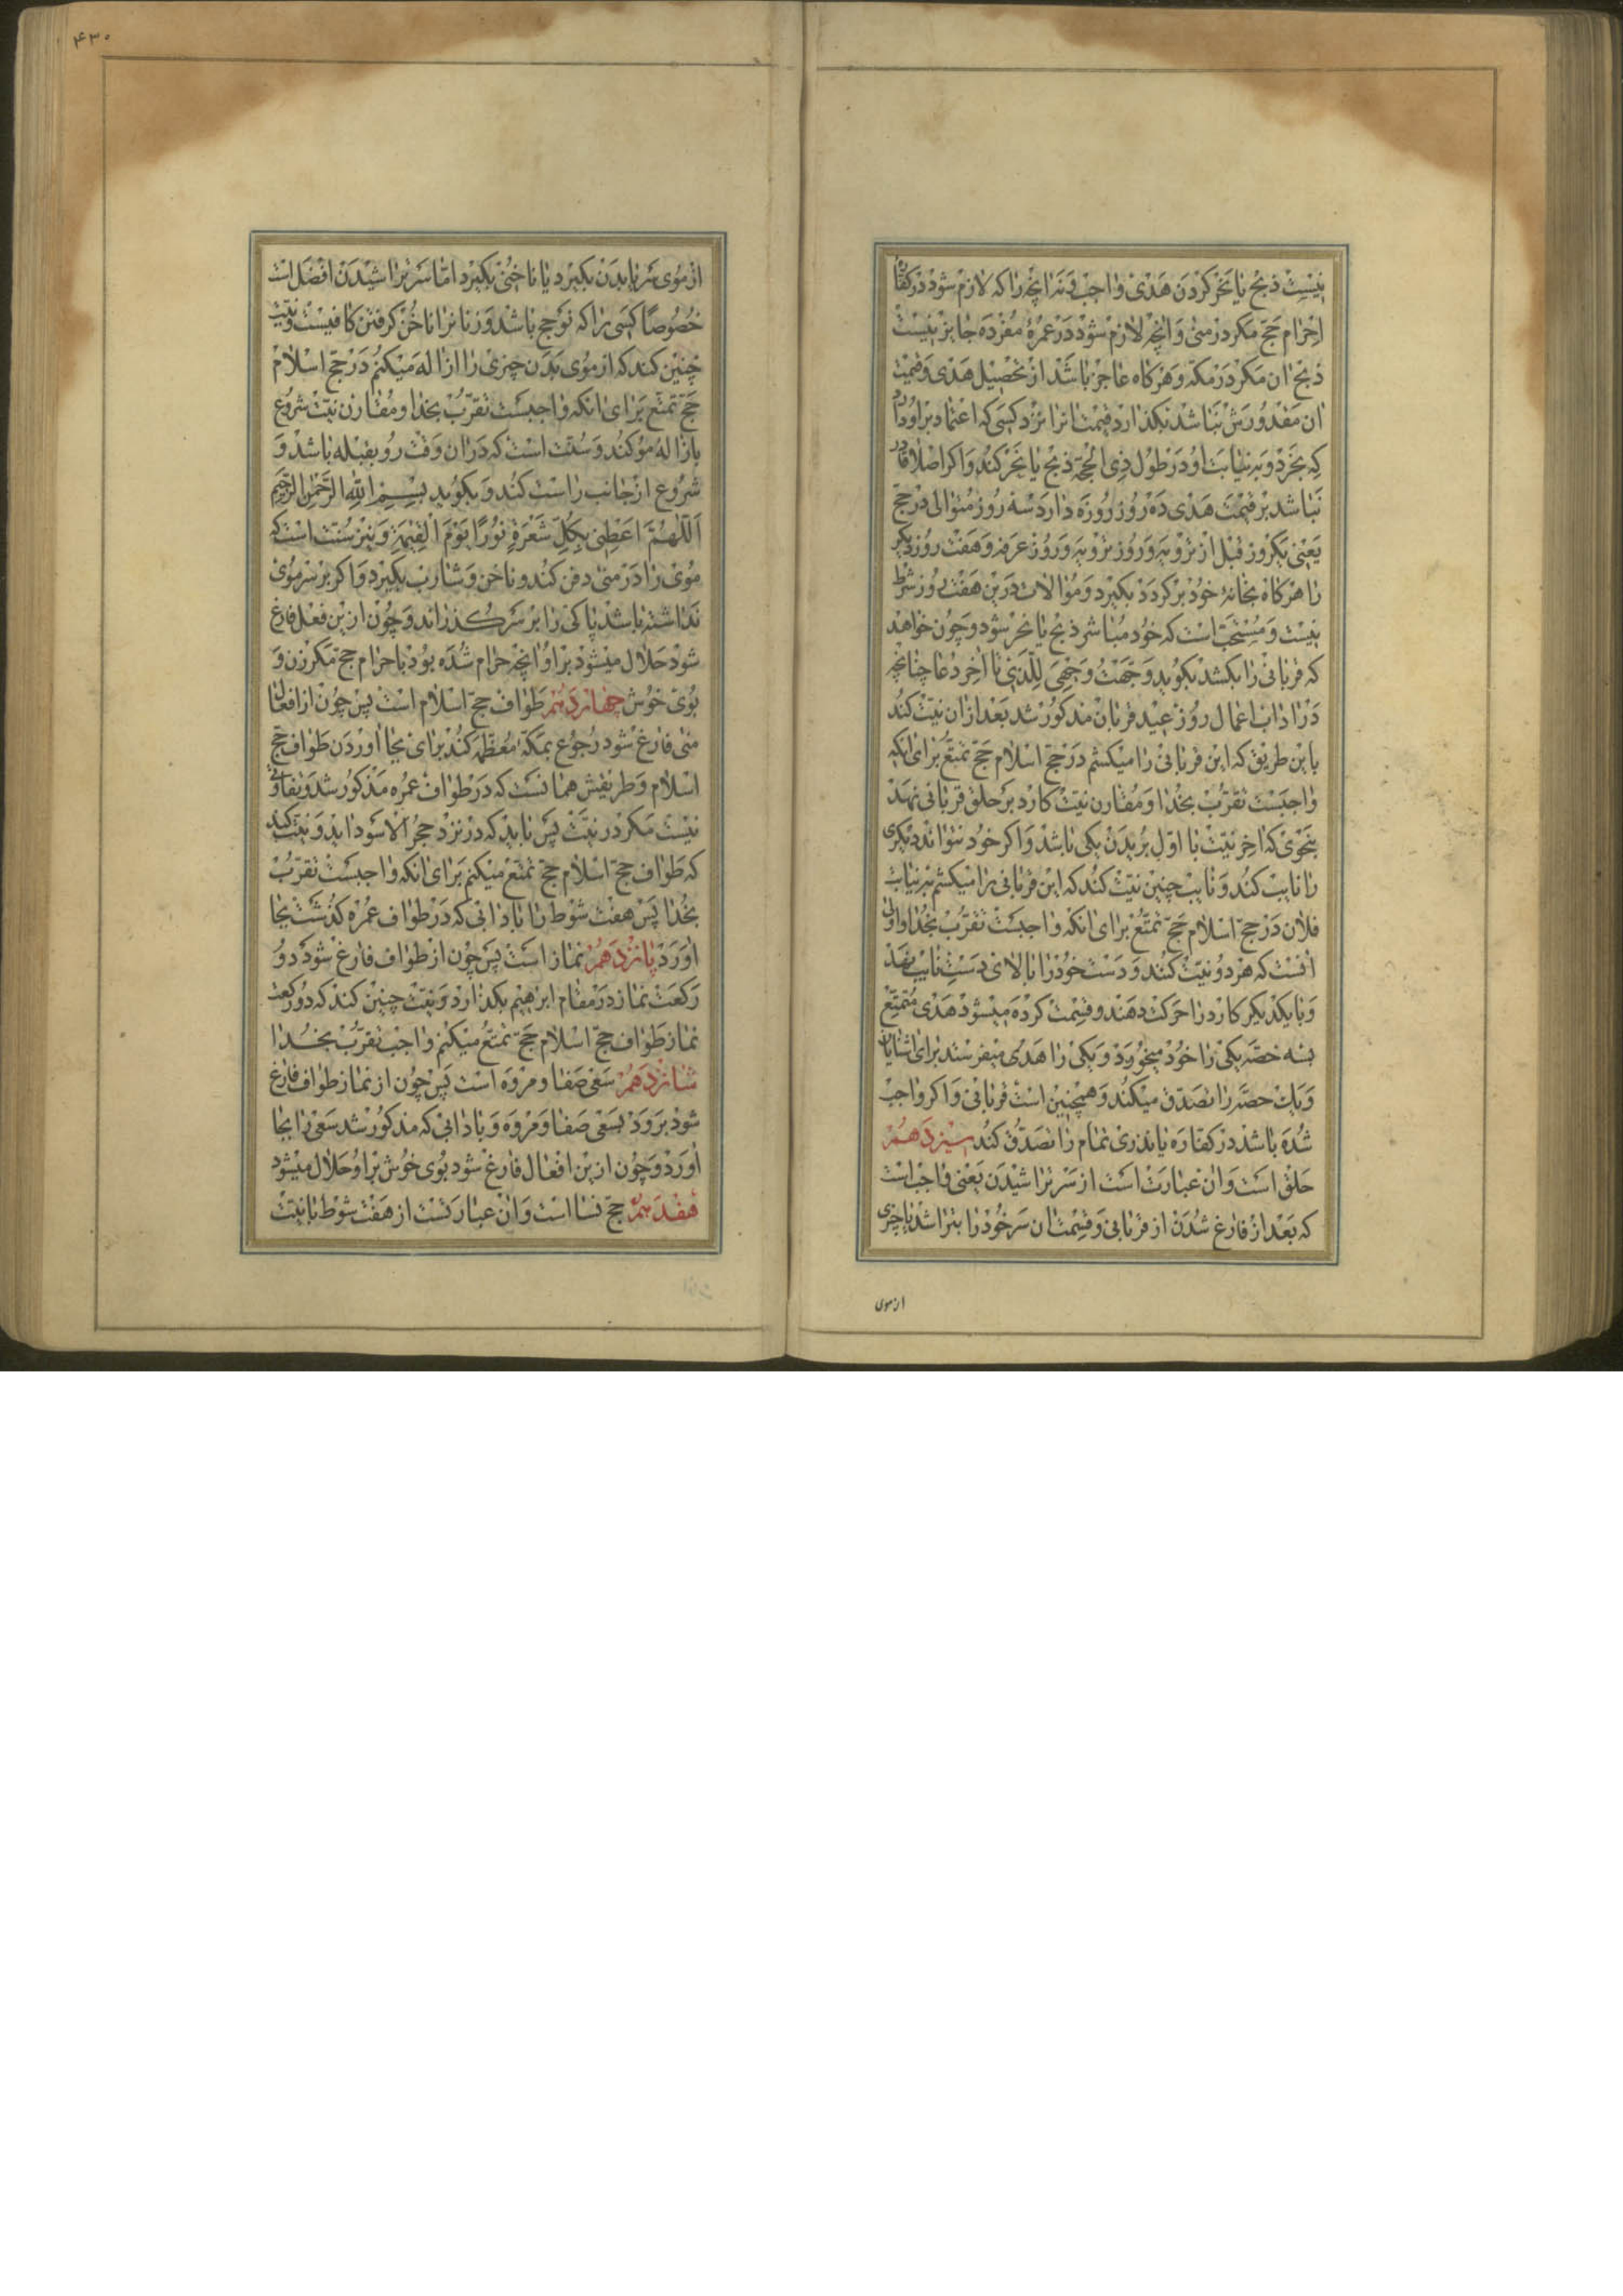 نیست ذبح یا نحر کردن هدی واجب و نه انچه را که لازم شود در کفّارهٔ
احرام حجّ مکر در منی و انچه لازم شود در عمرهٔ مفرده جایز نیست
ذبح ان مکر در مکّه و هرکاه عاجز باشد از تحصیل هدی و قیمت
ان مقدورش نباشد بکذارد قیمت انرا نزد کسی که اعتماد بر او دارد
که بخرد و به نیابت او در طول ذی الحجّه ذبح یا نحر کند و اکر اصلا قادر
نباشد بر قیمت هدی ده روز روزه دارد سه روز متوالی در حجّ
یعنی یکروز قبل از ترویه و روز ترویه و روز عرفه و هفت روز دیکر
را هرکاه بخانهٔ خود برکردد بکیرد و موالات درین هفت روز شرط
نیست و مستحبّ است که خود مباشر ذبح یا نحر شود و چون خواهد
که قربانی را بکشد بکوید وجّهت وجهی للّذی تا اخر دعا چنانچه
در اداب اعمال روز عید قربان مذکور شد بعد ازان نیّت کند
باین طریق که این قربانی را میکشم در حجّ اسلام حجّ تمتّع برای انکه
واجبست تقرّب بخدا و مقارن نیّت کارد بر حلق قربانی نهد
بنحوی که اخر نیّت با اوّل بریدن یکی باشد و اکر خود نتواند دیکری
را نایب کند و نایب چنین نیّت کند که این قربانی را میکشم به نیابت
فلان در حجّ اسلام حجّ تمتّع برای انکه واجبست تقرّب بخدا و اولی
انست که هر دو نیّت کنند و دست خود را بالای دست نایب نهد
و با یکدیکر کارد را حرکت دهند و قسمت کرده میشود هدی متمتّع
بسه حصّه یکی را خود میخورد و یکی را هدی میفرستد برای اشنایان
و یک حصّه را تصدّق میکند و همچنین است قربانی و اکر واجب
شده باشد در کفّاره یا نذری تمام را تصدّق کند سیزدهم
حلق است و ان عبارت است از سر تراشیدن یعنی واجب است
که بعد از فارغ شدن از قربانی و قسمت ان سر خود را بتراشد یا چیزی
از موی
۴۳۰
از موی سر یا بدن بکیرد یا ناخنی بکیرد امّا سر تراشیدن افضل است
خصوصًا کسی را که نو حج باشد و زنانرا ناخن کرفتن کافیست و نیّت
چنین کند که از موی بدن چیزی را ازاله میکنم در حجّ اسلام
حجّ تمتّع برای انکه واجبست تقرّب بخدا و مقارن نیّت شروع
بازاله مو کند و سنّت است که دران وقت رو بقبله باشد و
شروع از جانب راست کند و بکوید بسم الله الرّحمن الرّحیم
اللّهمّ اعطنی بکلّ شعرة نورًا یوم القیمة و نیز سنّت است که
موی را در منی دفن کند و ناخن و شارب بکیرد و اکر بر سر موی
نداشته باشد پاکی را بر سر کذراند و چون ازین فعل فارغ
شود حلال میشود بر او انچه حرام شده بود باحرام حجّ مکر زن و
بوی خوش چهاردهم طواف حجّ اسلام است پس چون از افعال
منی فارغ شود رجوع بمکّه معظّمه کند برای بجا اوردن طواف حجّ
اسلام و طریقش همانست که در طواف عمره مذکور شد و تفاوتی
نیست مکر در نیّت پس باید که در نزد حجر الاسود اید و نیّت کند
که طواف حجّ اسلام حجّ تمتّع میکنم برای انکه واجبست تقرّب
بخدا پس هفت شوط را با ادابی که در طواف عمره کذشت بجا
اورد پانزدهم نماز است پس چون از طواف فارغ شود دو
رکعت نماز در مقام ابراهیم بکذارد و نیّت چنین کند که دو رکعت
نماز طواف حجّ اسلام حجّ تمتّع میکنم واجب تقرّب بخدا
شانزدهم سعی صفا و مروه است پس چون از نماز طواف فارغ
شود برود بسعی صفا و مروه و با دابی که مذکور شد سعی را بجا
اورد و چون ازین افعال فارغ شود بوی خوش بر او حلال میشود
هفدهم حجّ نسا است و ان عبارتست از هفت شوط با نیّت